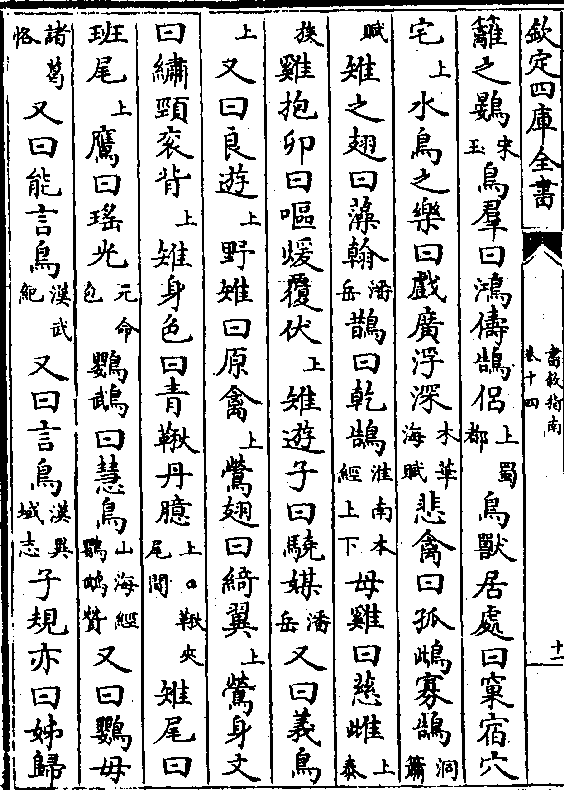 欽定四庫全書
書敘指南
卷十四
十一
籬之鷃宋玉鳥羣曰鴻儔鵠侶上蜀都鳥獸居處曰窠宿穴
宅上水鳥之樂曰戲廣浮深木華海賦悲禽曰孤鴟寡鵠洞簫
賦雉之翅曰藻翰潘岳鵲曰乾鵠淮南本經上下母雞曰慈雌上泰
族雞抱卵曰嘔煖覆伏上雉遊子曰驍媒潘岳又曰義鳥
上又曰良遊上野雉曰原禽上鶯翅曰綺翼上鶯身文
曰繡頸衮背上雉身色曰青鞦丹臆上。鞦夾尾間雉尾曰
班尾上鷹曰瑤光元命包鸚鵡曰慧鳥山海經鸚鴟贊又曰鸚母
諸葛恪又曰能言鳥漢武紀又曰言鳥漢異域志子規亦曰姊歸